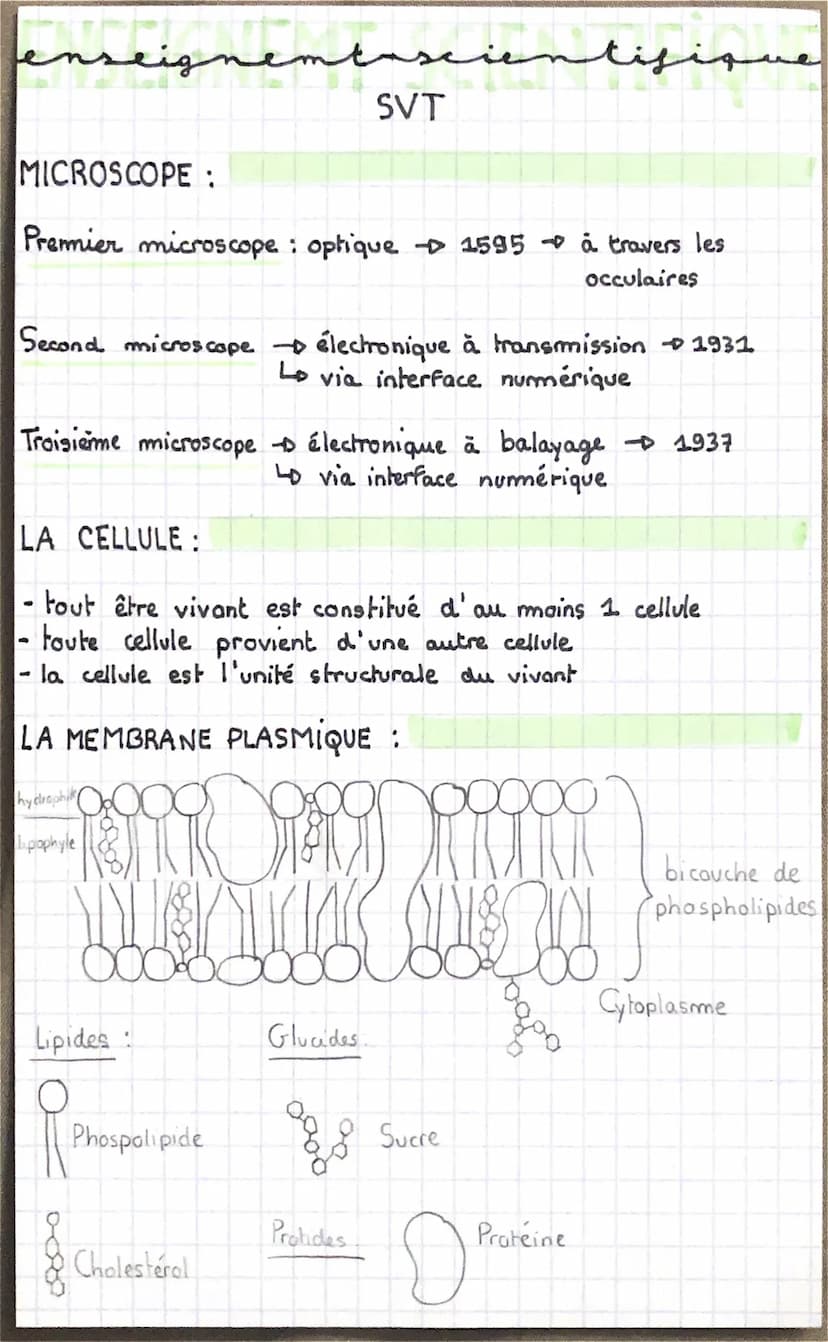 ENSEIGNEMT SCIENTIFIQUE
enseignemt scientifique
SVT
MICROSCOPE :
Premier microscope : optique → 1595 → à travers les
occulaires
Second microscope → électronique à transmission → 1931
↳ via interface numérique
Troisième microscope → électronique à balayage → 1937
↳ via interface numérique
LA CELLULE :
- tout être vivant est constitué d'au moins 1 cellule
- toute cellule provient d'une autre cellule
- la cellule est l'unité structurale du vivant
LA MEMBRANE PLASMIQUE :
hydrophile
lipophyle
bicouche de
phospholipides
Cytoplasme
Lipides :
Glucides.
Phospolipide
Sucre
Protides
Protéine
Cholestérol